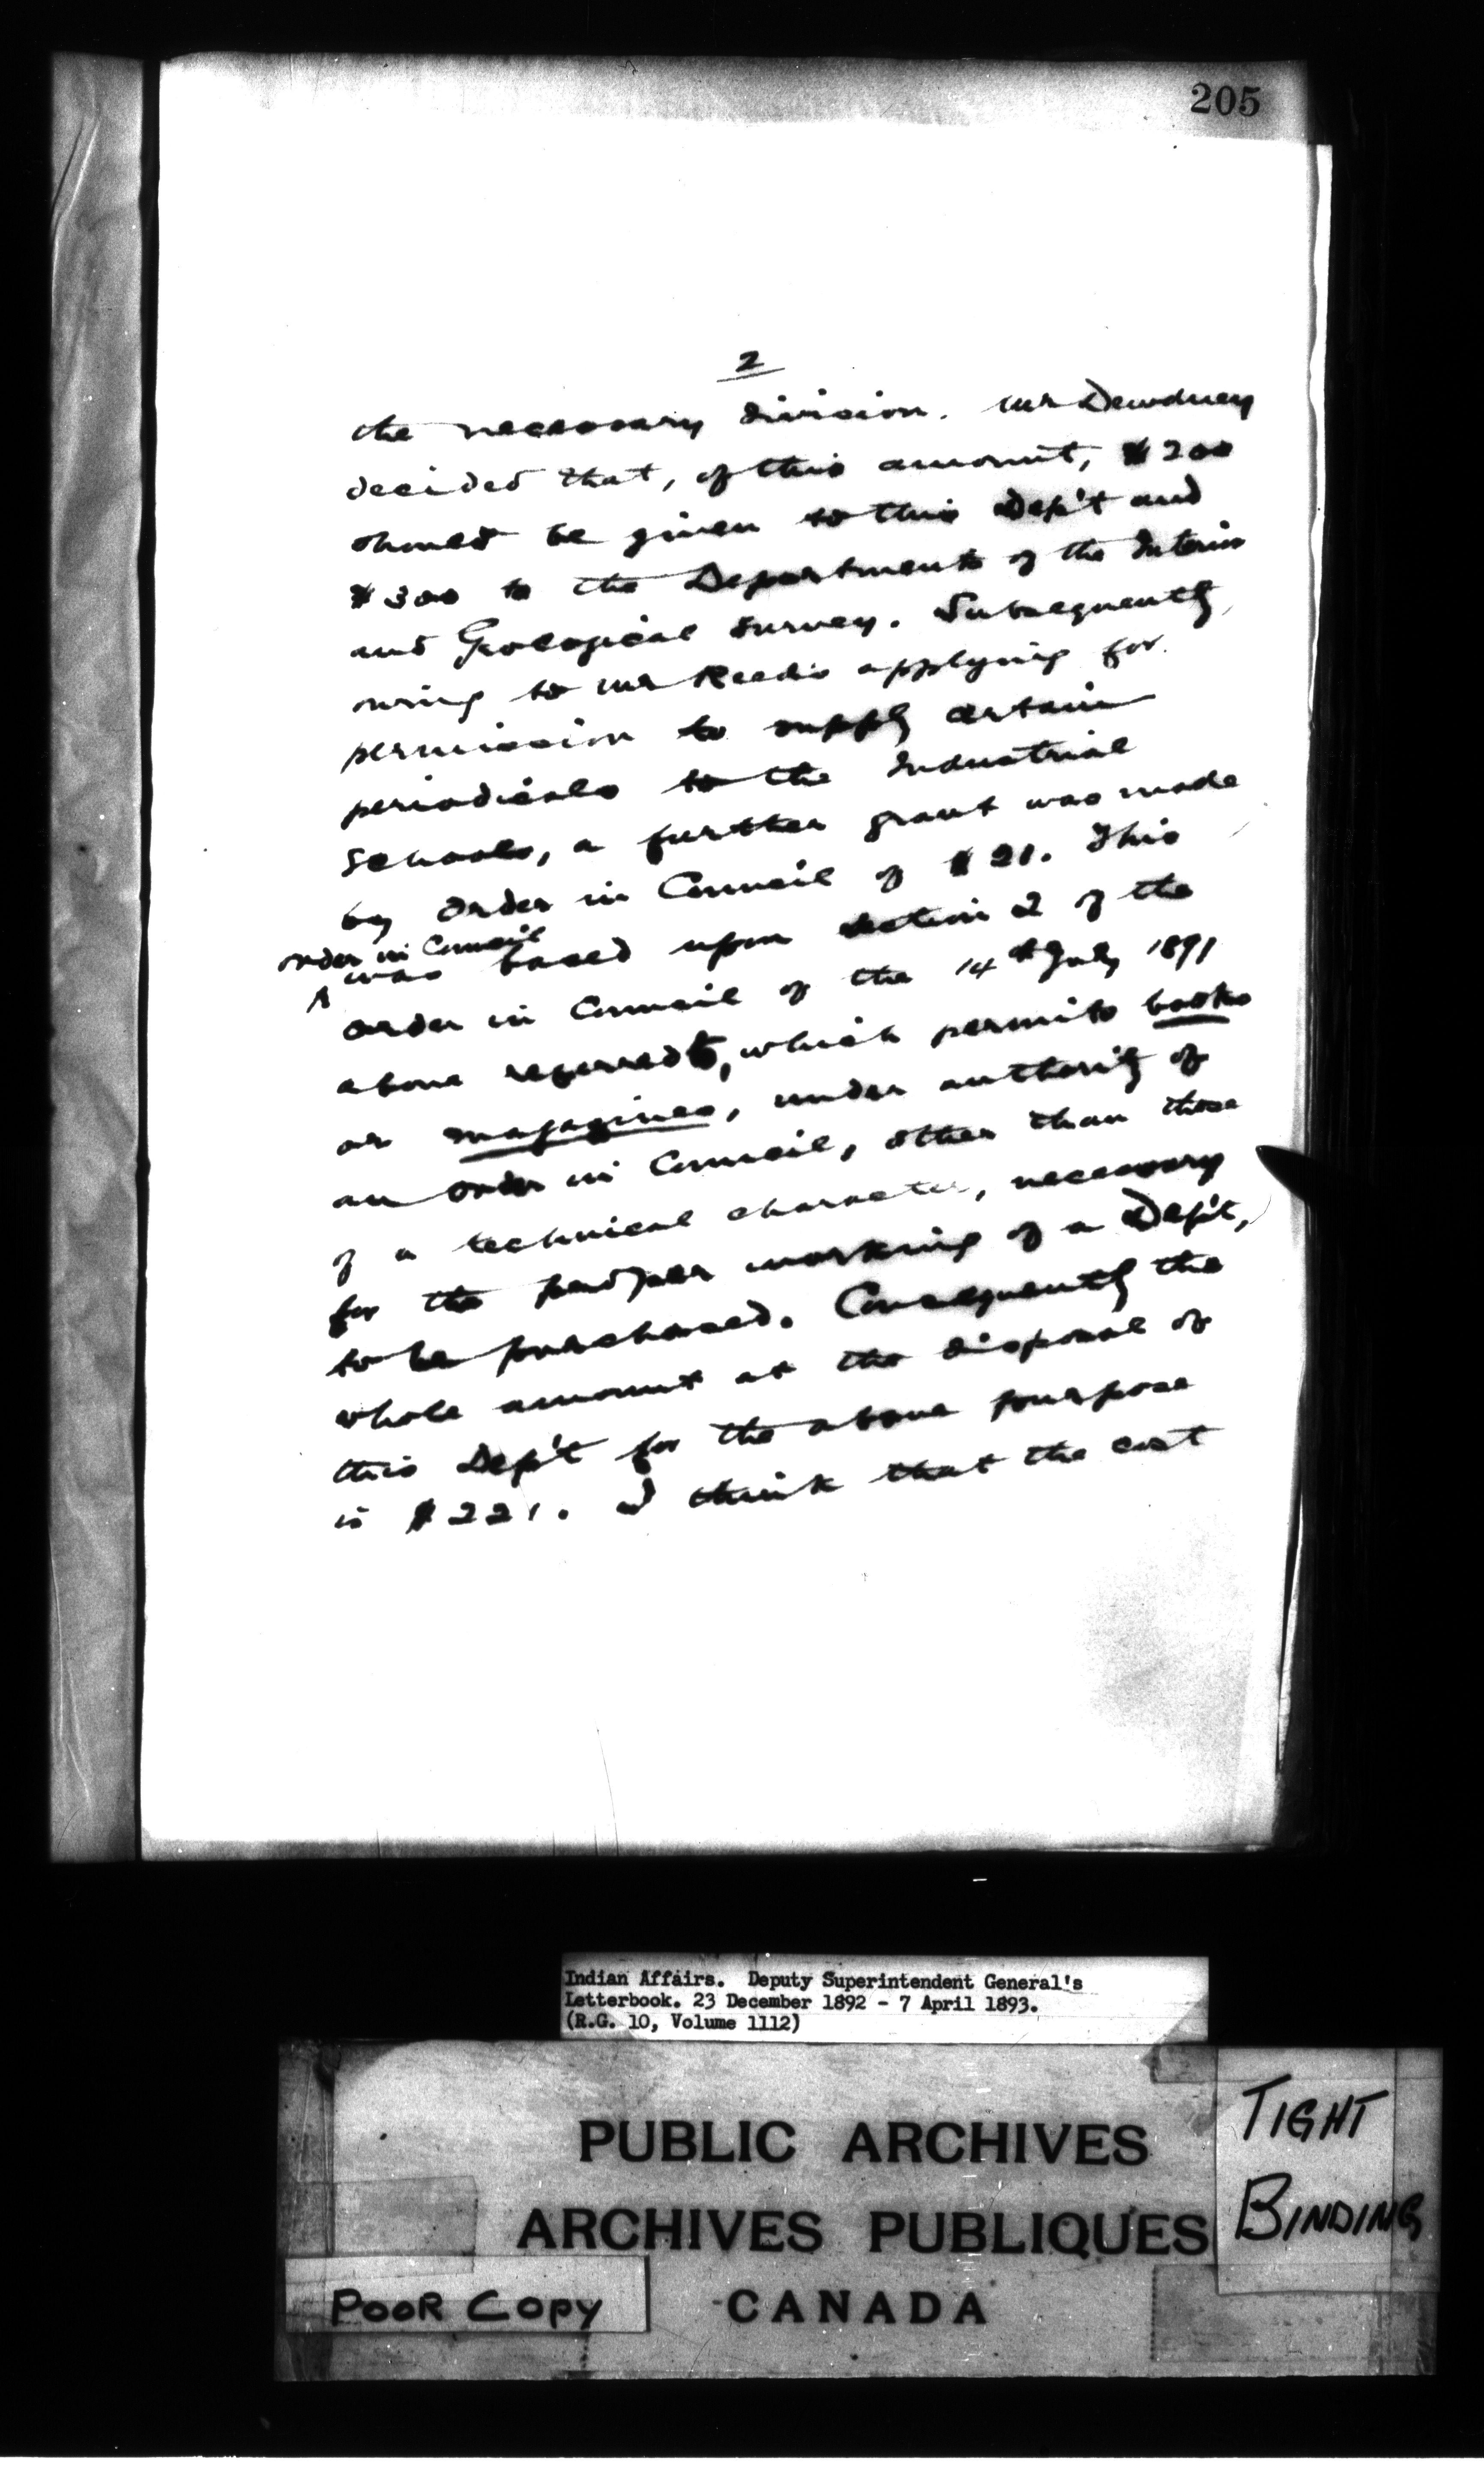 205
2
the necessary division. Mr Dewdney
decided that, of this amount, $200
should be given to this Dep't and
$300 to the Departments of the Interior
and Geological Survey. Subsequently,
owing to Mr Reed's applying for
permission to supply certain
periodicals to the Industrial
Schools, a further grant was made
by Order in Council of $21. This
order in Council
was based upon section 2 of the
Order in Council of the 14th July 1891
above referred to, which permits books
or magazines, under authority of
an Order in Council, other than those
of a technical character, necessary
for the proper working of a Dep't,
to be purchased. Consequently the
whole amount at the disposal of
this Dep't for the above purpose
is $221. I think that the cost
Indian Affairs. Deputy Superintendent General's
Letterbook. 23 December 1892 - 7 April 1893.
(R.G. 10, Volume 1112)
PUBLIC ARCHIVES
ARCHIVES PUBLIQUES
CANADA
TIGHT
BINDING
POOR COPY